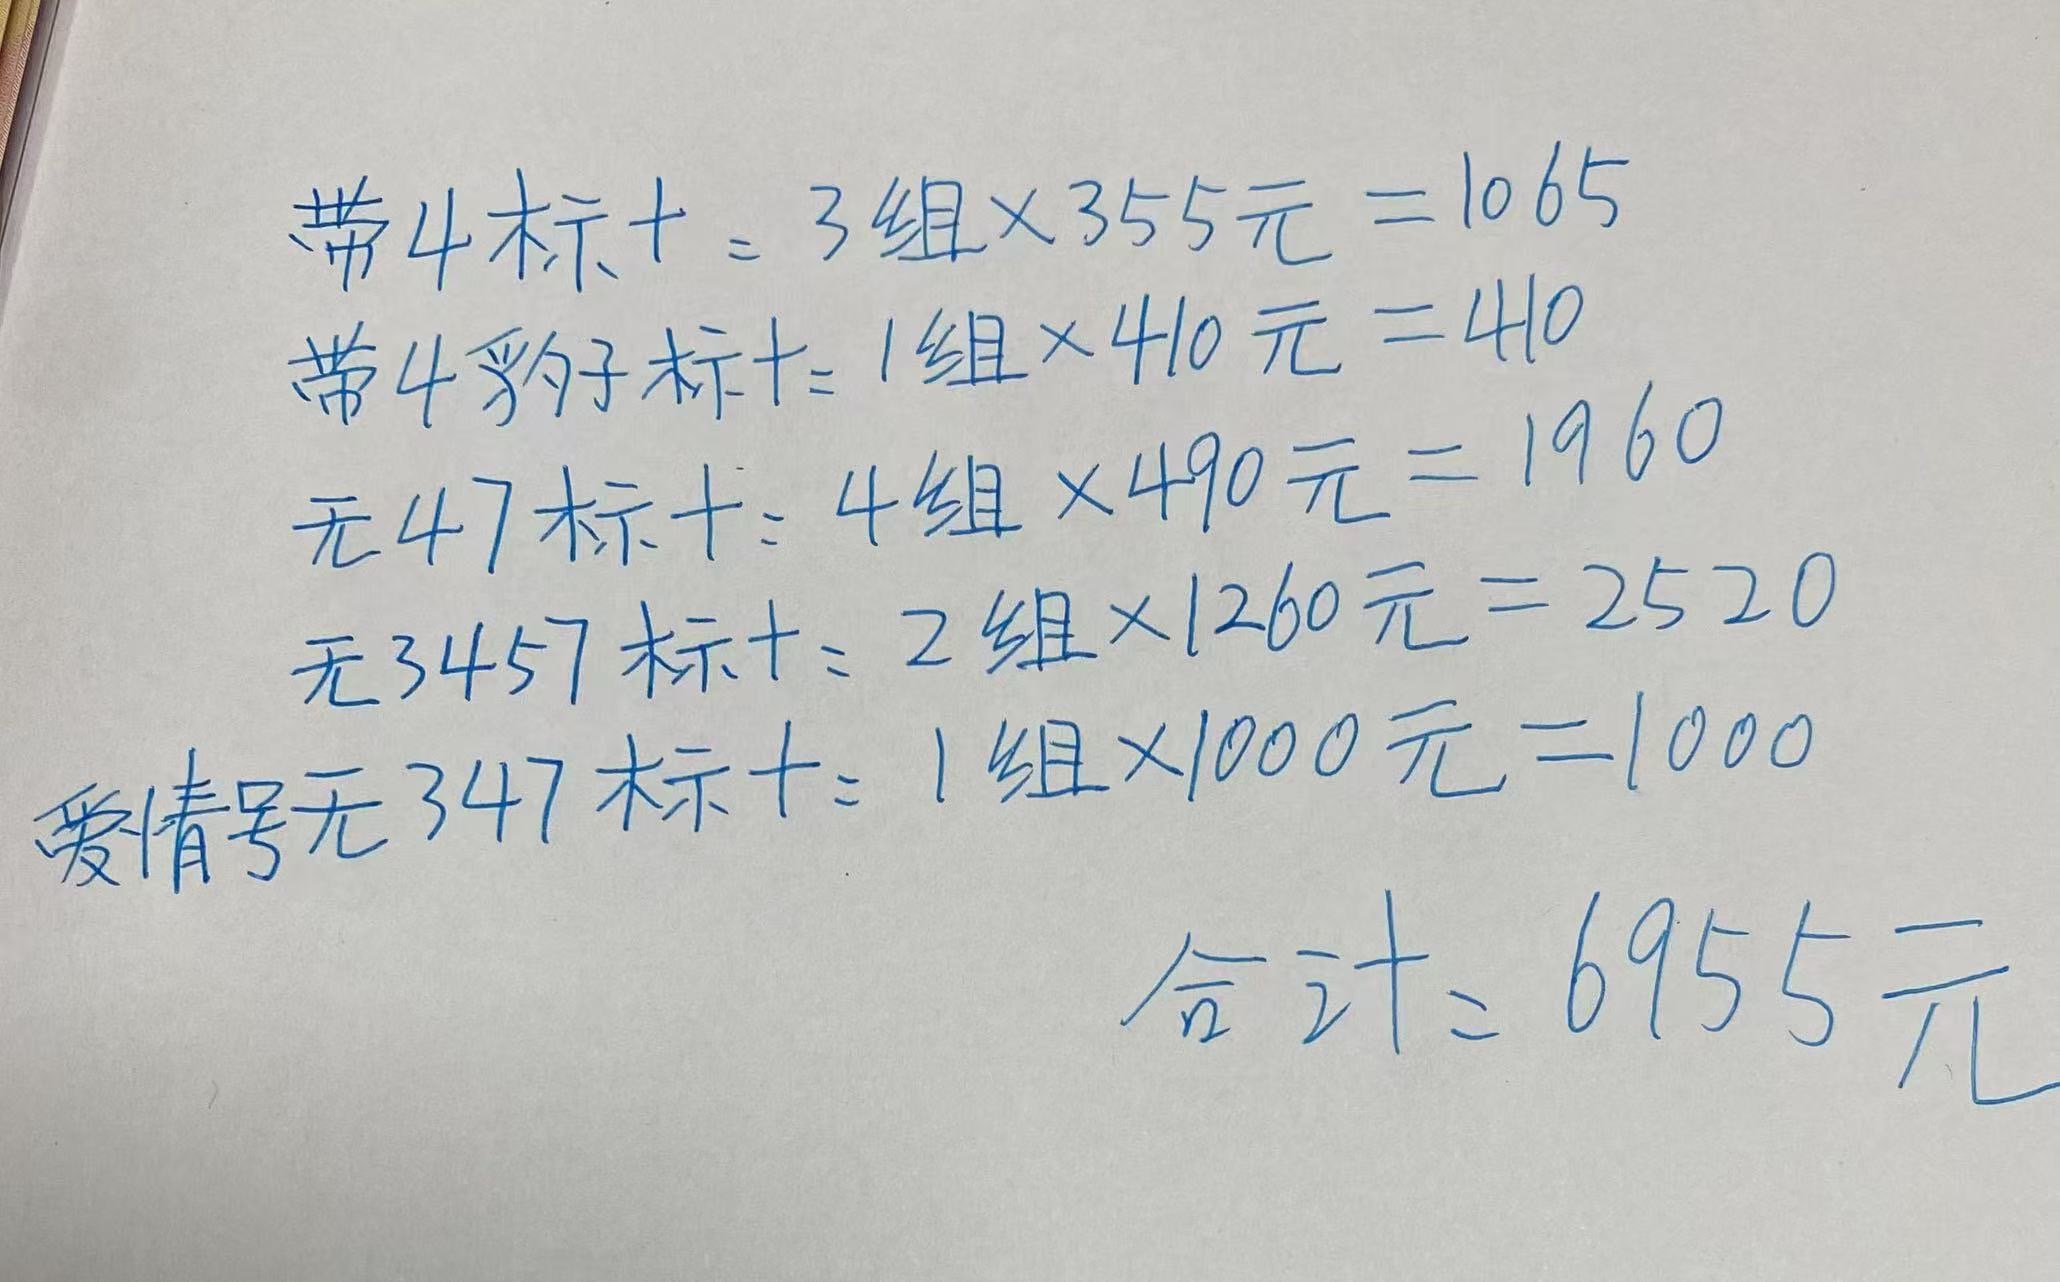 带4标十=3组×355元=1065
带4豹子标十=1组×410元=410
无47标十=4组×490元=1960
无3457标十=2组×1260元=2520
爱情号无347标十=1组×1000元=1000
合计=6955元